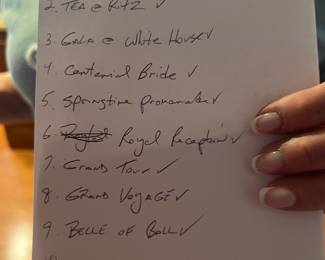 2. TEA @ RITZ ✓
3. GALA @ White House ✓
4. Centennial Bride ✓
5. Springtime Promenade ✓
6. Royal Reception ✓
7. GRAND TOUR ✓
8. GRAND VOYAGE ✓
9. BELLE OF BALL ✓